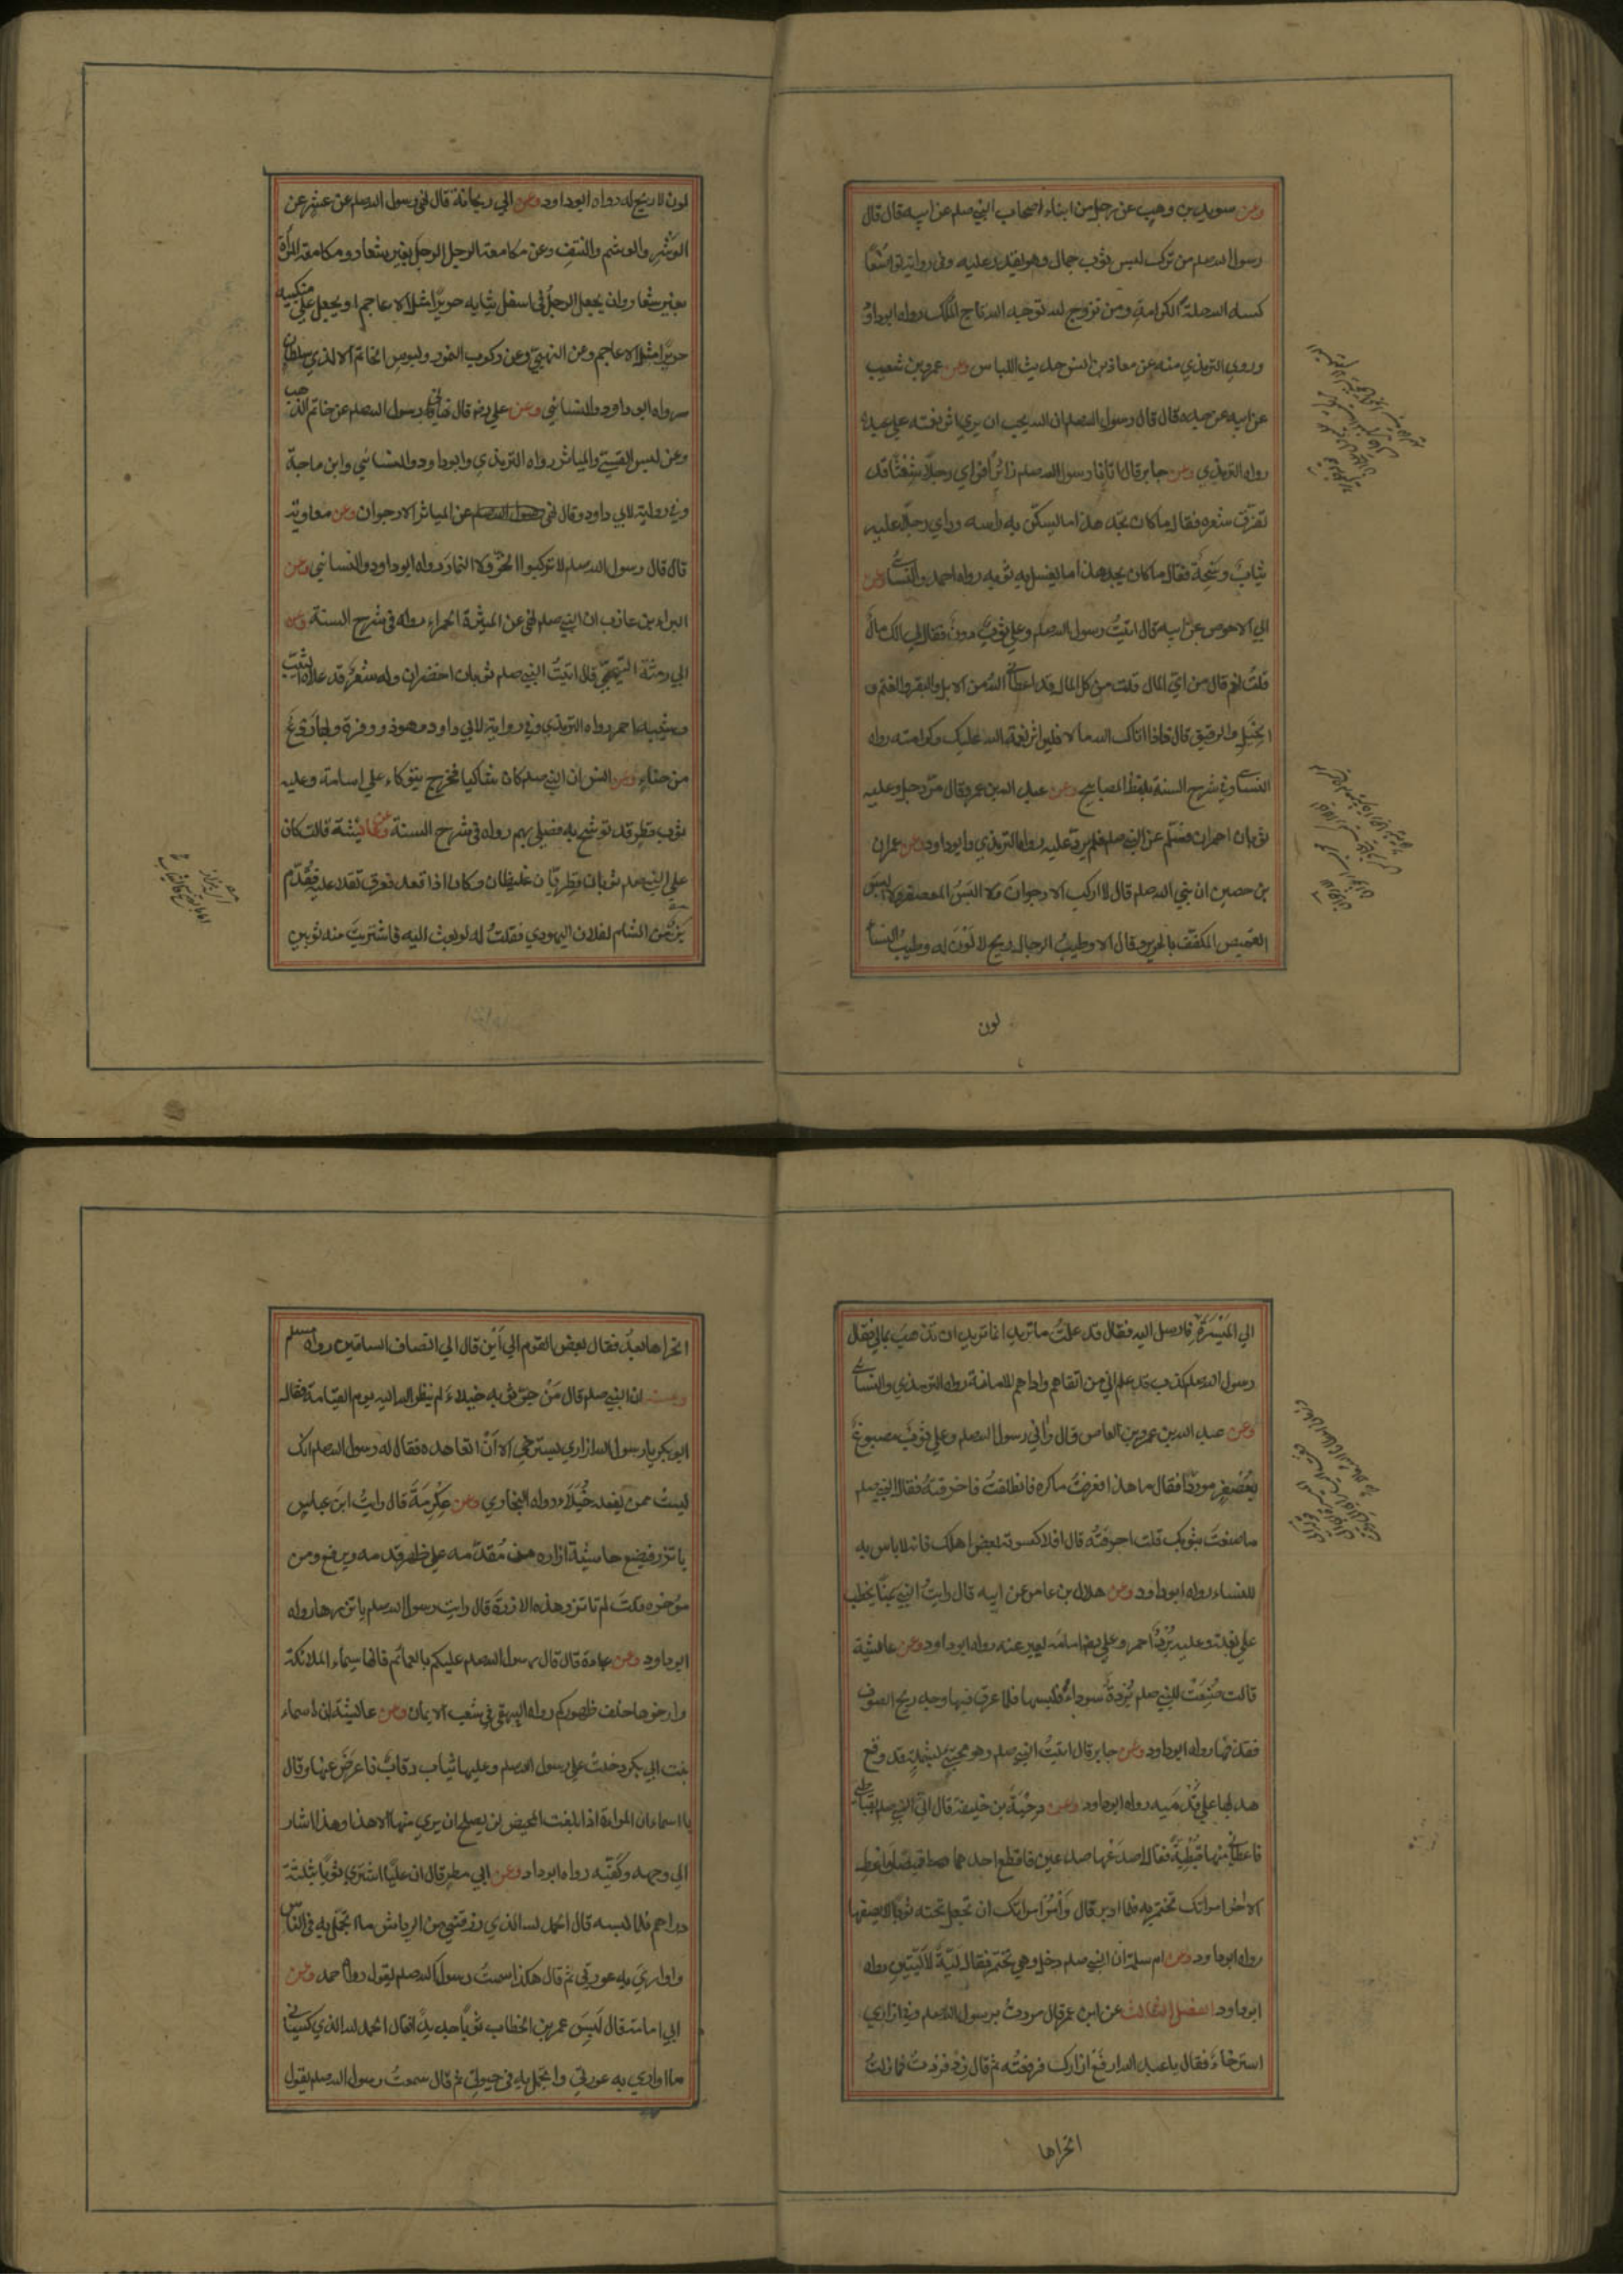 وعن سويد بن وهب عن رجل من ابناء اصحاب النبي صلعم عن ابيه قال قال
رسول الله صلعم من ترك لبس ثوب جمال وهو يقدر عليه وفي رواية تواضعًا
كساه الله حلة الكرامة ومن تزوج لله توجه الله تاج الملك رواه ابوداود
وروى الترمذي منه عن معاذ بن انس حديث اللباس وعن عمرو بن شعيب
عن ابيه عن جده قال قال رسول الله صلعم ان الله يحب ان يرى اثر نعمته علي عبده
رواه الترمذي وعن جابر قال اتانا رسول الله صلعم زائرًا فراي رجلًا شعثًا قد
تفرّق شعره فقال ما كان يجد هذا ما يسكّن به راسه وراي رجلًا عليه
ثيابٌ وسَخِةٌ فقال ما كان يجد هذا ما يغسل به ثوبه رواه احمد والنسائي وعن
ابي الاحوص عن ابيه قال اتيتُ رسول الله صلعم وعلي ثوبٌ دونٌ فقال لي الك مالٌ
قلتُ نعم قال من ايّ المال قلت من كل المال قد اعطاني اللهُ من الابل والبقر والغنم و
الخيل والرقيق قال فاذا اتاك الله مالا فلير اثر نعمة الله عليك وكرامته رواه
النسائي وفي شرح السنة بلفظ المصابيح وعن عبد الله بن عمرو قال مرّ رجل وعليه
ثوبان احمران فسلّم عن النبي صلعم فلم يردّ عليه رواه الترمذي وابوداود وعن عمران
بن حصين ان نبي الله صلعم قال لا اركب الارجوانَ ولا البَسُ المعصفر ولا البس
القميص المكفّف بالحرير وقال الا وطيبُ الرجال ريح لا لَوْنَ له وطيبُ النساء
لون
لون لا ريح له رواه ابوداود وعن ابي ريحانة قال نهى رسول الله صلعم عن عشر عن
الوَشْرِ والوشم والنتفِ وعن مكامعة الرجل الرجلَ بغير شعار ومكامعة المرأة
بغير شعار وان يجعل الرجلُ في اسفل ثيابه حريرًا مثل الاعاجم او يجعل علي منكبيه
حريرًا مثل الاعاجم وعن النهبى وعن ركوب النمور ولبوس الخاتم الا لذي سلطان
رواه ابوداود والنسائي وعن علي رض قال نهاني رسول الله صلعم عن خاتم الذهب
وعن لبس القسّي والمياثر رواه الترمذي وابوداود والنسائي وابن ماجة
وفي رواية لابي داود وقال نهى رسول الله صلعم عن المياثر الارجوان وعن معاوية
قال قال رسول الله صلعم لا تركبوا الخزّ ولا النمارَ رواه ابوداود والنسائي وعن
البراء بن عازب ان النبي صلعم نهى عن الميثرة الحمراء رواه في شرح السنة وعن
ابي رمثة التيمي قال اتيتُ النبي صلعم ثوبان اخضران وله شعرٌ قد علاه الشيب
وشيبه احمر رواه الترمذي وفي رواية لابي داود وهو ذو وفرة وبها رَدْعٌ
من حناءٍ وعن انس ان النبي صلعم كان شاكيا فخرج يتوكاء علي اسامة وعليه
ثوب قطر قد توشح به فصلي بهم رواه في شرح السنة وعن عائشة قالت كان
علي النبي صلعم ثوبان قطريّان غليظان وكان اذا قعد فعرق ثقلا عليه فقُدّم
بزٌّ من الشام لفلان اليهودي فقلتُ له لو بعث اليه فاشتريتَ منه ثوبين
الي المَيْسَرَةِ فارسل اليه فقال قد علمتُ ما تريد انما تريد ان تذهبَ بمالي فقال
رسول الله صلعم كذب قد علم اني من اتقاهم واداهم للامانة رواه الترمذي والنسائي
وعن عبد الله بن عمرو بن العاص قال راٰني رسول الله صلعم وعلي ثوبٌ مصبوغٌ
بعُصْفرٍ موردًا فقال ما هذا فعرفتُ ماكره فانطلقتُ فاحرقتهُ فقال النبي صلعم
ما صنعتَ بثوبك قلت احرقتُه قال افلا كسوته بعض اهلك فانه لا باس به
للنساء رواه ابوداود وعن هلال بن عامر عن ابيه قال رايتُ النبي بمنًا يخطب
علي بغلة وعليه بُرْدٌ احمر وعلي رض امامه يعبر عنه رواه ابوداود وعن عائشة
قالت صُنِعَتْ للنبي صلعم بُرْدةٌ سوداءُ فلبسها فلما عرق فيها وجد ريح الصوف
فقذفها رواه ابوداود وعن جابر قال اتيتُ النبي صلعم وهو محتبٍ بشملة قد وقع
هدبها علي قَدْمَيه رواه ابوداود وعن دِحْيَةَ بن خليفة قال اُتي النبي صلعم بقباطي
فاعطاني منها قبْطِيَةً فقال اصدَعْها صدعين فاقطع احدهما قميصًا واَعطِ
الاخر امراتك تختمر به فلما ادبر قال وَأْمُر امراتك ان تجعل تحته ثوبًا لا يصفها
رواه ابوداود وعن ام سلمة ان النبي صلعم دخل وهي تختمر فقال لَيّةً لا لَيّتَينِ رواه
ابوداود الفصل الثالث عن ابن عمر قال مررتُ برسول الله صلعم وفي ازاري
استرخاءٌ فقال يا عبد الله ارفَع ازارك فرفعتُه ثم قال زِدْ فزدتُ فما زلتُ
اتحراها
اتحراها بعدُ فقال بعض القوم الي اَيْن قال الي انصاف الساقين رواه مسلم
وعنه ان النبي صلعم قال مَنْ جرّ ثوبه خيلاءَ لم ينظر الله اليه يوم القيامة فقال
ابوبكر يا رسول الله ازاري يسترخي الا اَنْ اتعاهده فقال له رسول الله صلعم انك
لست ممن يفعله خُيَلاء رواه البخاري وعن عِكْرِمَةَ قال رايتُ ابنَ عباسٍ
ياتزر فيضع حاشية ازاره من مُقَدّمه علي ظهر قدمه ويرفع ومن
مؤخره قلتَ لم تاتزر هذه الازرةَ قال رايت رسول الله صلعم ياتزرها رواه
ابوداود وعن عبادة قال قال رسول الله صلعم عليكم بالعمائم فانها سيماء الملائكة
وارخوها خلف ظهوركم رواه البيهقي في شعب الايمان وعن عائشة ان اسماء
بنت ابي بكر دخلتْ علي رسول الله صلعم وعليها ثياب رقاقٌ فاعرَضَ عنها وقال
يا اسماء ان المراءة اذا بلغت المحيض لن يصلح ان يري منها الا هذا وهذا اشار
الي وجهه وكفّيه رواه ابوداود وعن ابي مطر قال ان عليًا اشتري ثوبًا بثلثة
دراهم فلما لبسه قال الحمد لله الذي رزقني من الرياش ما اتجمّل به في الناس
واُوارِيَ به عورتي ثم قال هكذا سمعتُ رسول الله صلعم يقول رواه احمد وعن
ابي امامة قال لَبِسَ عمر بن الخطاب ثوبًا جديدًا فقال الحمد لله الذي كساني
ما اُواري به عورتي واتجمّل به في حيوتي ثم قال سمعتُ رسول الله صلعم يقول